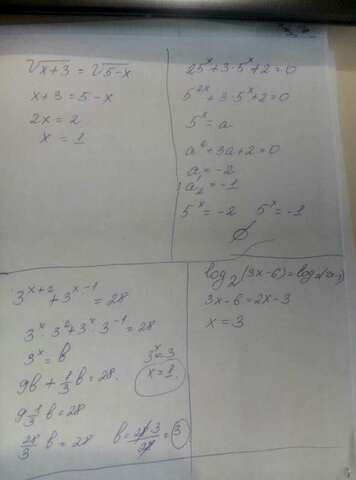 √x+3 = √5-x
x+3 = 5-x
2x = 2
x = 1
25^x+3·5^x+2=0
5^2x+3·5^x+2=0
5^x=a
a²+3a+2=0
a₁=-2
a₂=-1
5^x=-2 5^x=-1
∅
3^x+2 + 3^x-1 = 28
3^x·3²+3^x·3^-1=28
3^x=b
9b+1/3b=28.
9 1/3 b=28
28/3 b=28 b=28·3/28=3
3^x=3
x=1.
log₂(3x-6)=log₂(
3x-6=2x-3
x=3